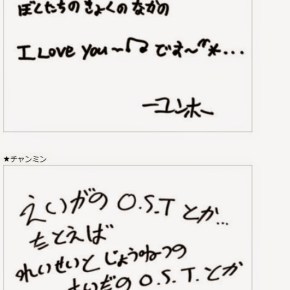 ぼくたちのきょくのなかの
I Love You〜♫ です〜"*...
ーユンホー
★チャンミン
えいがの O.S.T とか...
たとえば
れいせいと じょうねつの
あいだの O.S.T. とか